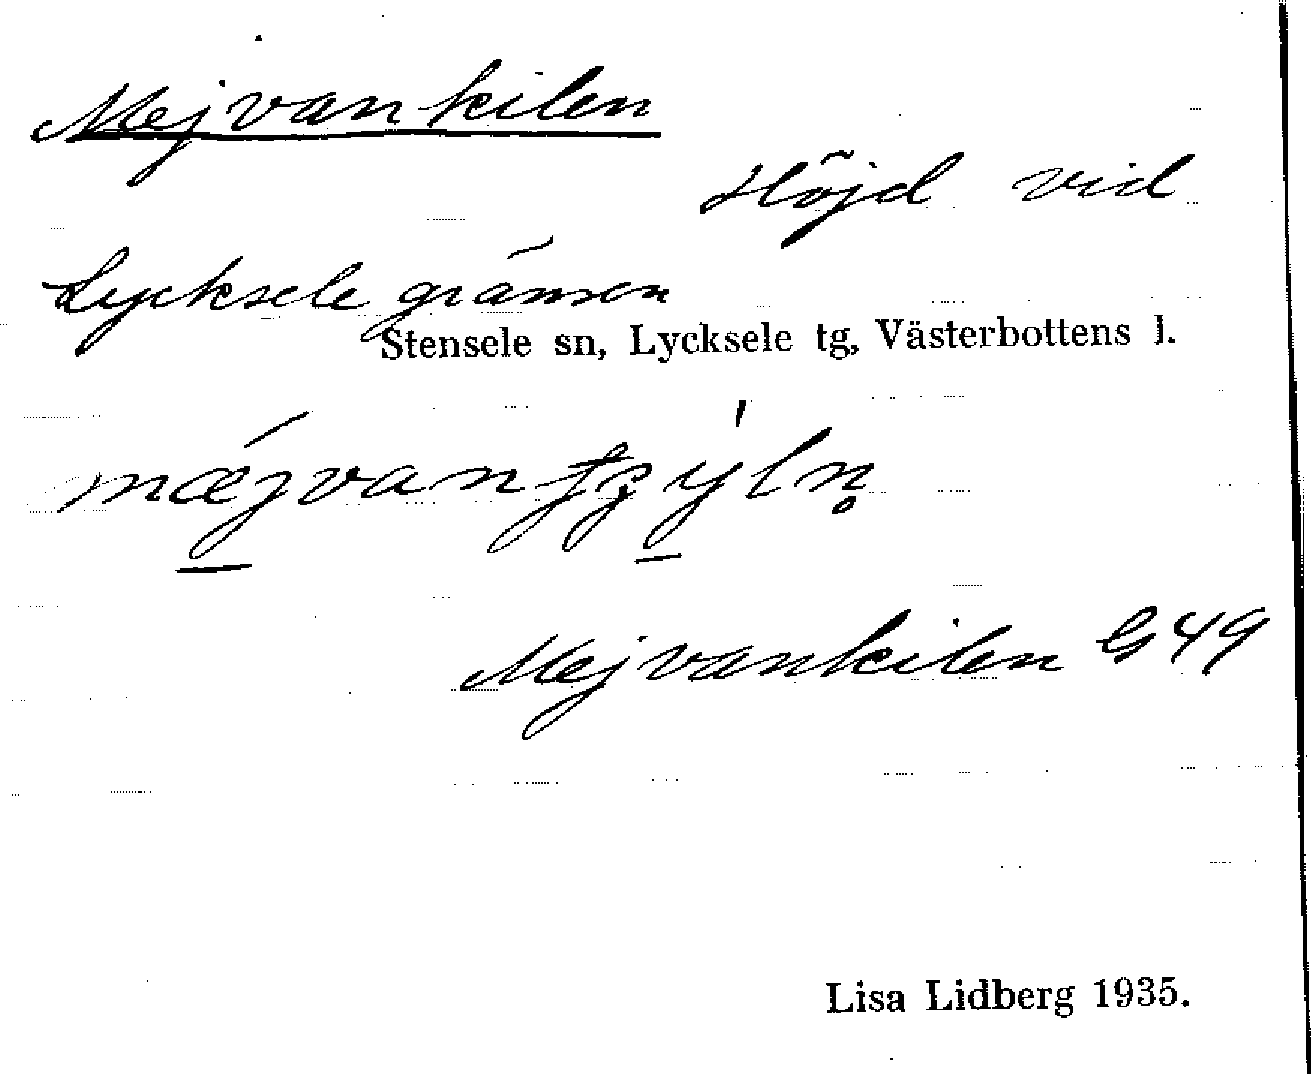 Mejvankilen
Höjd vid
Lycksele gränsen
Stensele sn, Lycksele tg, Västerbottens l.
Mejvankilen G 49
Lisa Lidberg 1935.